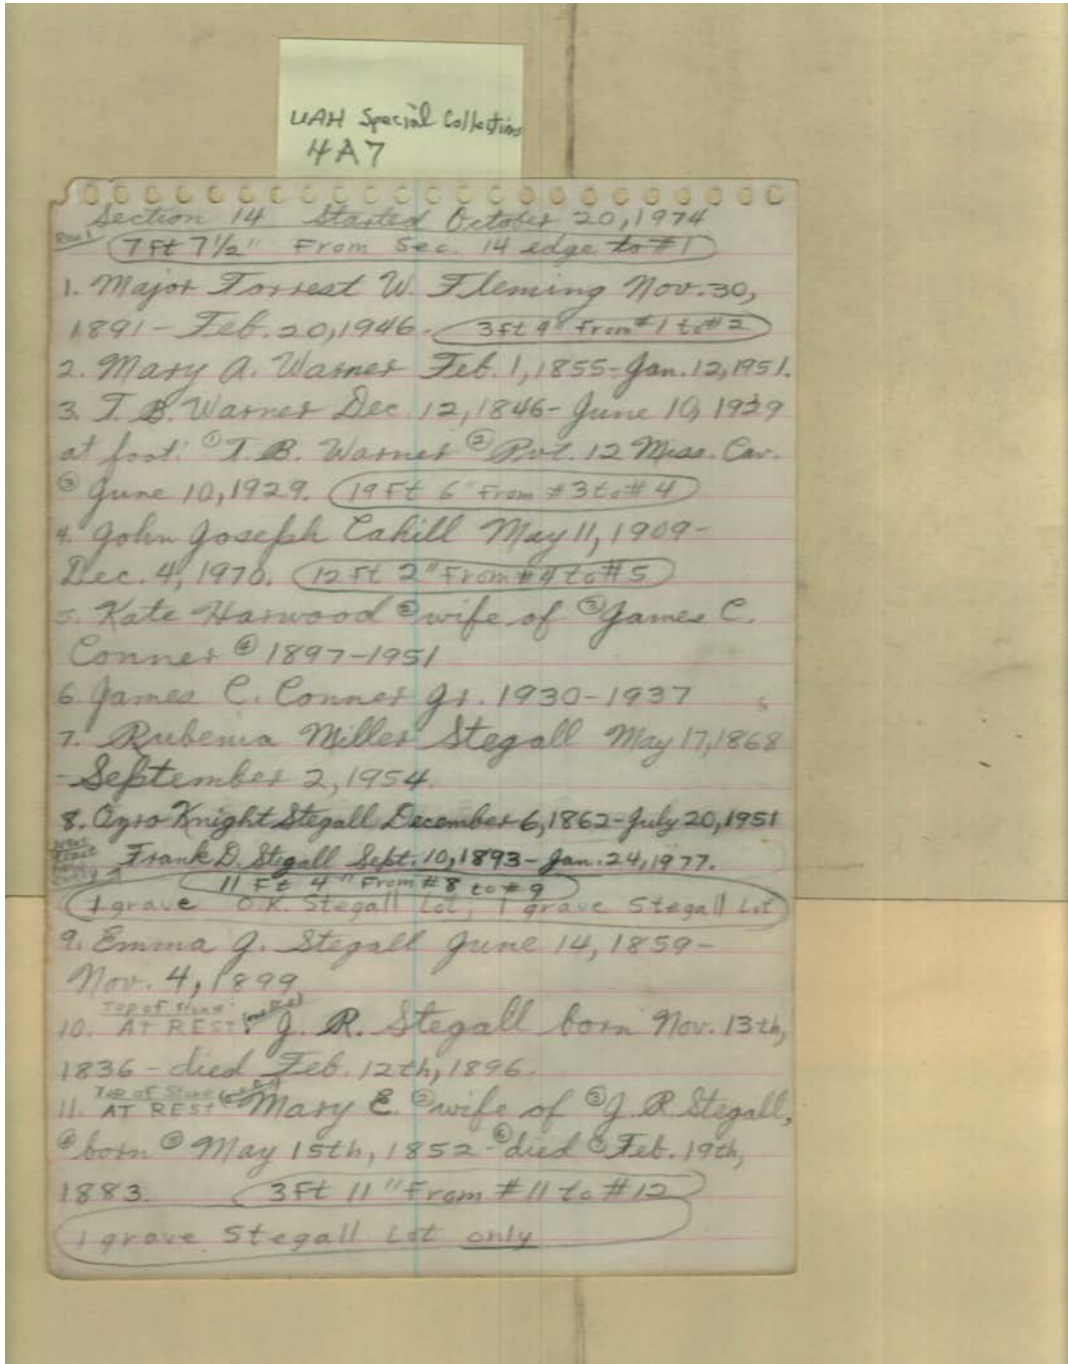 UAH Special Collections
4A7
Section 14 Started October 20, 1974
Row 1
7 Ft 7 1/2" From Sec. 14 edge to #1
1. Major Forrest W. Fleming Nov. 30,
1891 - Feb. 20, 1946. 3 ft 9" from #1 to #2
2. Mary A. Warner Feb. 1, 1855 - Jan. 12, 1951.
3. T. B. Warner Dec. 12, 1846 - June 10, 1929
at foot: ① T. B. Warner ② Pvt. 12 Miss. Cav.
③ June 10, 1929. 19 Ft 6" From #3 to #4
4. John Joseph Cahill May 11, 1909 -
Dec. 4, 1970. 12 Ft 2" From #4 to #5
5. Kate Harwood ② wife of ③ James C.
Conner ④ 1897-1951
6. James C. Conner Jr. 1930-1937
7. Rubenia Miller Stegall May 17, 1868
- September 2, 1954.
8. Ozro Knight Stegall December 6, 1862 - July 20, 1951
Frank D. Stegall Sept. 10, 1893 - Jan. 24, 1977.
11 Ft 4" From #8 to #9
1 grave O.K. Stegall Lot; 1 grave Stegall Lot
9. Emma J. Stegall June 14, 1859 -
Nov. 4, 1899.
Top of Stone:
10. AT REST: J. R. Stegall born Nov. 13th,
1836 - died Feb. 12th, 1896.
Top of Stone
11. AT REST Mary E. ② wife of ③ J. R. Stegall,
④ born ⑤ May 15th, 1852 - ⑥ died ⑦ Feb. 19th,
1883. 3 Ft 11" From #11 to #12
1 grave Stegall Lot only